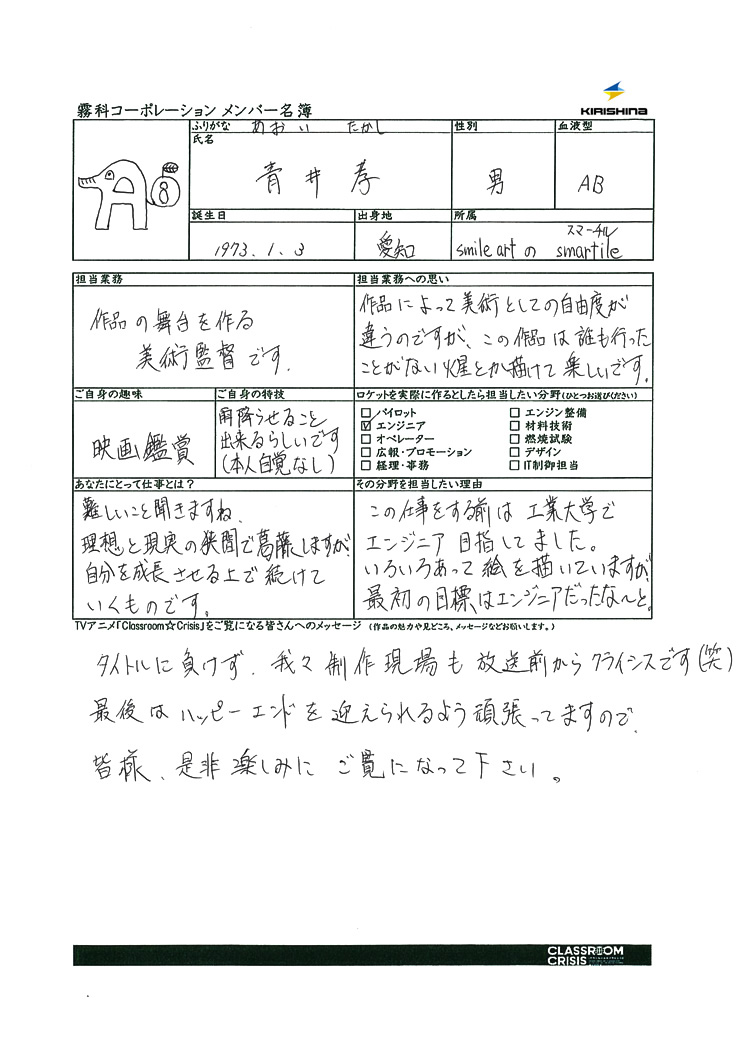 KIRISHINA
霧科コーポレーション メンバー名簿
ふりがな あおい たかし
氏名
青井 孝
性別
男
血液型
AB
A 8
誕生日
1973.1.3
出身地
愛知
所属
スマーチル
smile art の smartile
担当業務
作品の舞台を作る
美術監督です.
担当業務への思い
作品によって美術としての自由度が
違うのですが、この作品は誰も行った
ことがない火星とか描けて楽しいです。
ご自身の趣味
映画鑑賞
ご自身の特技
雨降らせること
出来るらしいです
(本人自覚なし)
ロケットを実際に作るとしたら担当したい分野(ひとつお選びください)
パイロット
エンジニア
オペレーター
広報・プロモーション
経理・事務
エンジン整備
材料技術
燃焼試験
デザイン
IT制御担当
あなたにとって仕事とは?
難しいこと聞きますね、
理想と現実の狭間で葛藤しますが、
自分を成長させる上で続けて
いくものです。
その分野を担当したい理由
この仕事をする前は工業大学で
エンジニア目指してました。
いろいろあって絵を描いていますが、
最初の目標はエンジニアだったな〜と。
TVアニメ「Classroom☆Crisis」をご覧になる皆さんへのメッセージ (作品の魅力や見どころ、メッセージなどお願いします。)
タイトルに負けず、我々制作現場も放送前からクライシスです(笑)
最後はハッピーエンドを迎えられるよう頑張ってますので、
皆様、是非楽しみにご覧になって下さい。
CLASSROOM
CRISIS